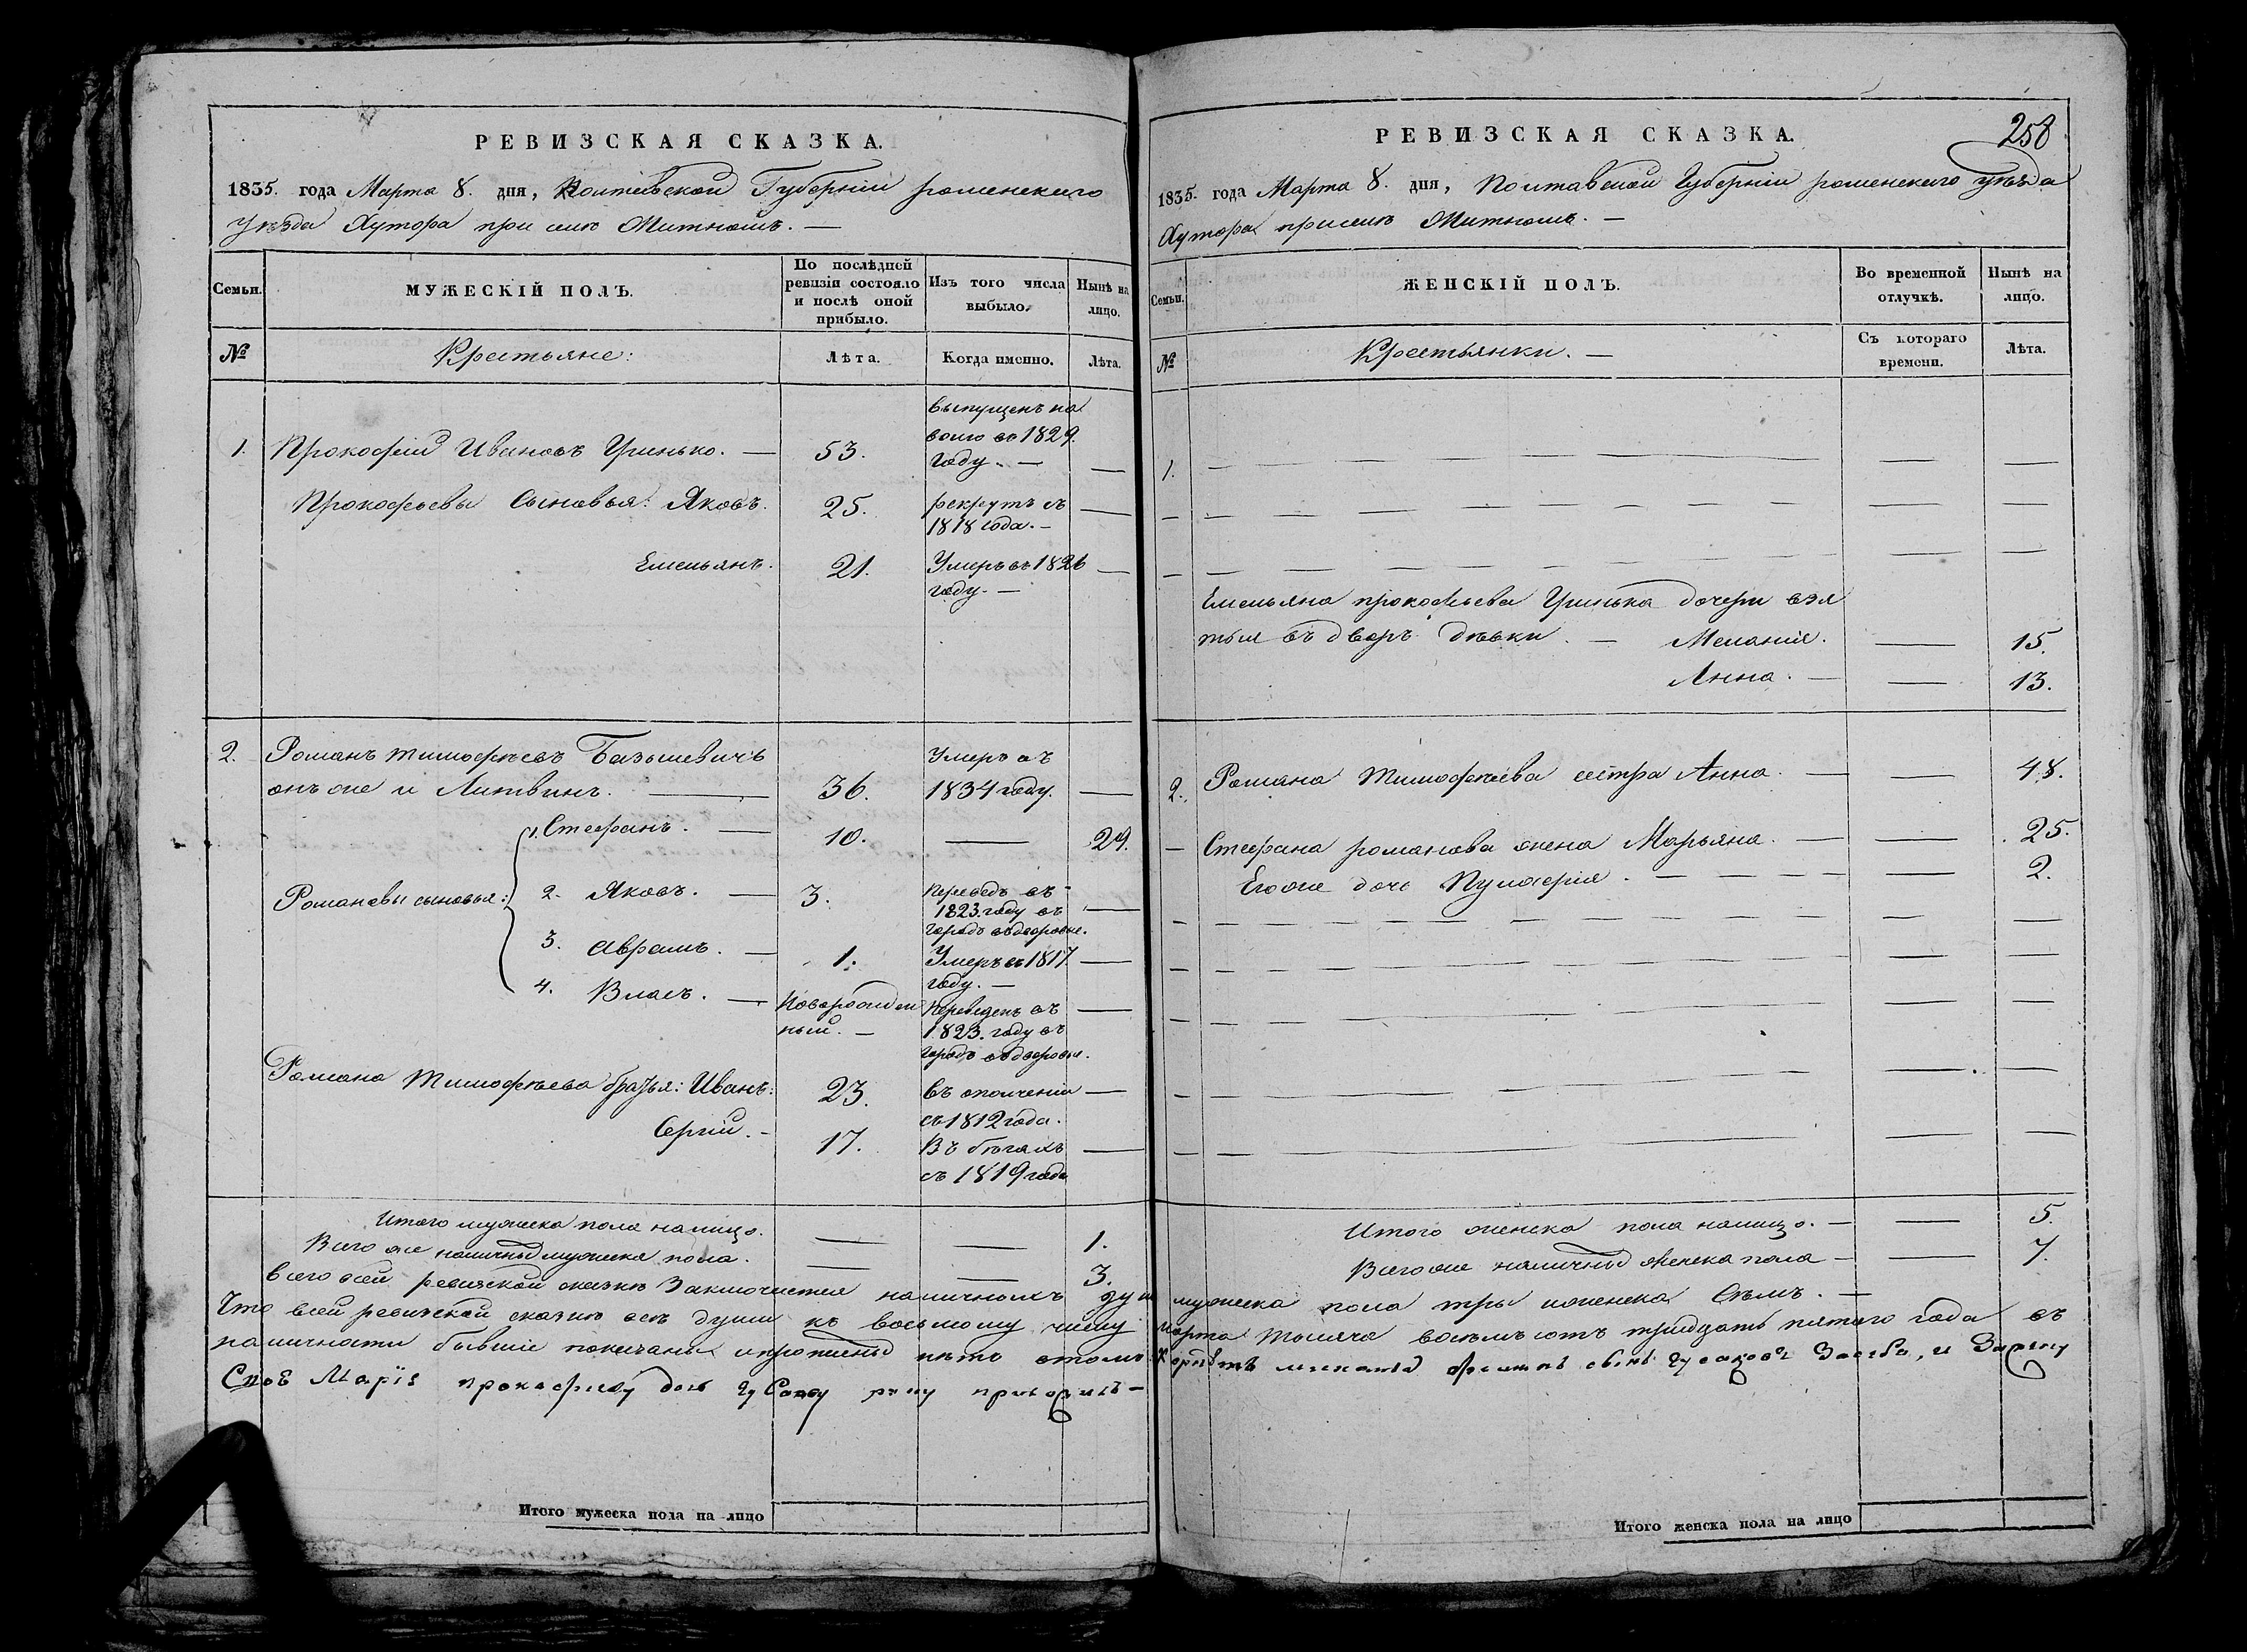 РЕВИЗСКАЯ СКАЗКА.
1835. года Марта 8. дня, Полтавской Губерніи роменского
уѣзда Хутора при селѣ Житномъ. —
Семьи.
МУЖЕСКІЙ ПОЛЪ.
По послѣдней ревизіи состояло и послѣ оной прибыло.
Изъ того числа выбыло.
Нынѣ на лицо.
№
Крестьяне:
Лѣта.
Когда именно.
Лѣта.
выпущенъ на
1. Прокофій Ивановъ Гринько. — 53. волю въ 1829.
году. — —
Прокофьевы сыновья: Яковъ. 25. рекрутъ съ —
1818 года. —
Емельянъ. 21. Умеръ въ 1826 —
году. —
2. Романъ Тимофѣевъ Базышевичъ Умеръ въ
онъ же и Литвинъ. — 36. 1834 году. —
1. Стефанъ. — 10. — 29.
Романовы сыновья: 2. Яковъ. — 3. Переведъ въ
1823. году въ —
городъ въ дворовые.
3. Аврамъ. — 1. Умеръ въ 1817 —
году. —
4. Власъ. — Новорожден Переведенъ въ —
ный. — 1823. году въ
городъ въ дворовые.
Романа Тимофѣева братья: Иванъ: 23. въ ополченіи —
съ 1812 года.
Сергій. — 17. Въ бѣгахъ —
съ 1819 года
Итого мужеска пола налицо. — — 1.
Всего же наличныхъ мужеска пола. — — 3.
РЕВИЗСКАЯ СКАЗКА.
258
1835. года Марта 8. дня, Полтавской Губерніи роменского уѣзда
Хутора при селѣ Житномъ. —
Семьи.
ЖЕНСКІЙ ПОЛЪ.
Во временной отлучкѣ.
Нынѣ на лицо.
№
Крестьянки. —
Съ котораго времени.
Лѣта.
1.
Емельяна прокофьева Гринька дочери взя
тые въ дворъ дѣвки. — Меланія. — 15.
Анна. — — 13.
2. Романа Тимофѣева сестра Анна. — — 48.
— Стефана романова жена Марьяна. — — 25.
Его же дочь Пулхерія. — — 2.
Итого женска пола налицо. — — 5.
Всего же наличныхъ женска пола — — 7.
Всего въ сей ревизской сказкѣ Заключается наличныхъ душ мужеска пола три и женска Семъ. —
Что въ сей ревизской сказкѣ всѣ души къ восьмому числу марта тысяча восемь сотъ тридцать пятого года въ
наличности бывшіе показаны и пропис­ныхъ нѣтъ въ томъ
Марія
руку приложилъ —
Итого мужеска пола на лицо
Итого женска пола на лицо